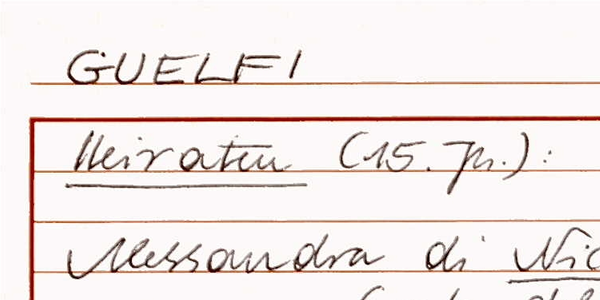 GUELFI
Heiraten (15. Jh.):
Alessandra di Nic